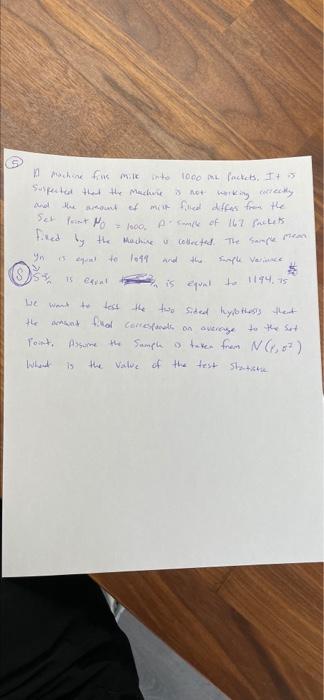 5
A machine fills milk into 1000 mL Packets. It is
Suspected that the Machine is not working correctly
and the amount of milk filled differs from the
Set Point μ0 = 1000. A sample of 167 Packets
filled by the Machine is collected. The sample mean
yn is equal to 1099 and the sample variance
S is equal is equal to 1194.75
We want to test the two sided hypothesis that
the amount filled corresponds on average to the Set
Point. Assume the sample is taken from N(μ, σ²)
What is the value of the test Statistic